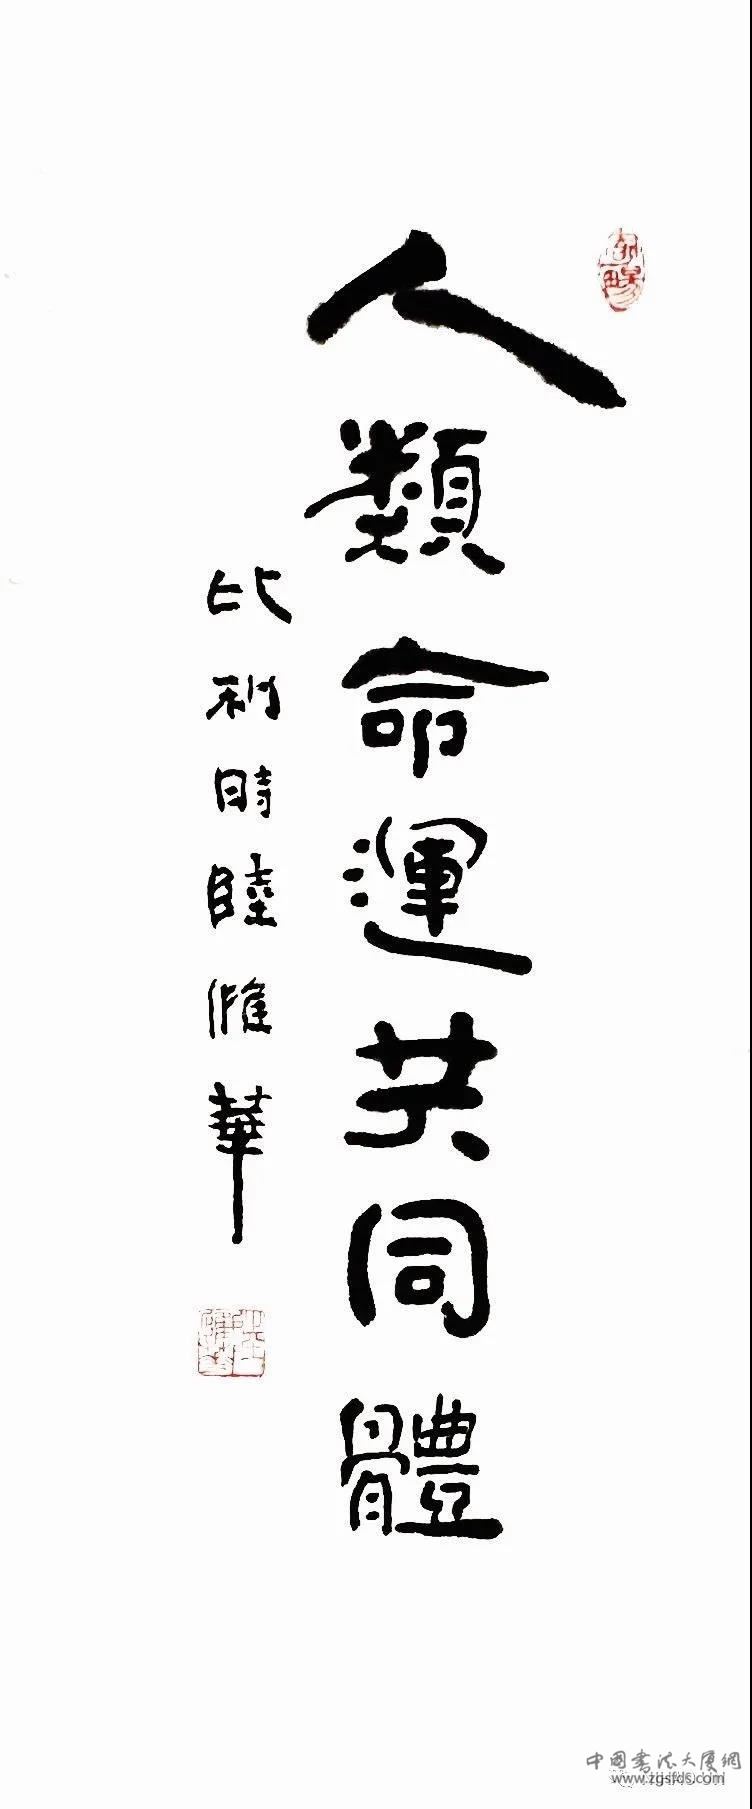 人類命運共同體
比利時陸惟華
中國書法大厦網
www.zgsfds.com